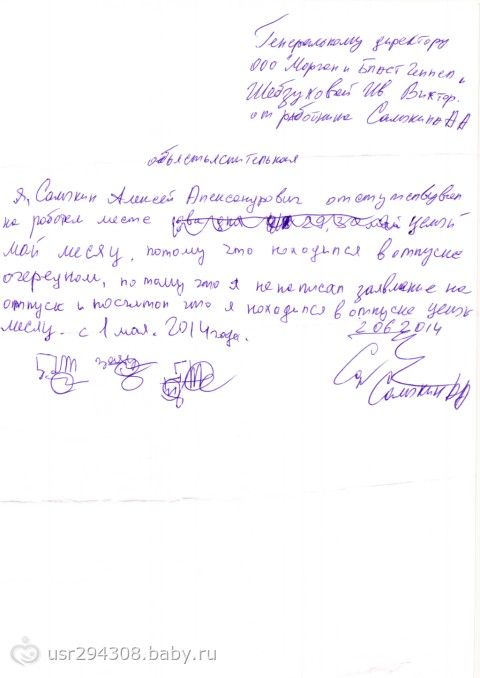 Генеральному директору
ООО "Морган и
Виктор.
от работника Салыкина АА
объястьяснительная
Я, Салыкин Алексей Александрович отстутствовал
на рабочем месте целый
май месяц, потому что находился в отпуске
очередном, потому что я не написал заявление на
отпуск и посчитал что я находился в отпуске
месяц. с 1 мая. 2014 года.
2062014
Салыкин АА
usr294308.baby.ru